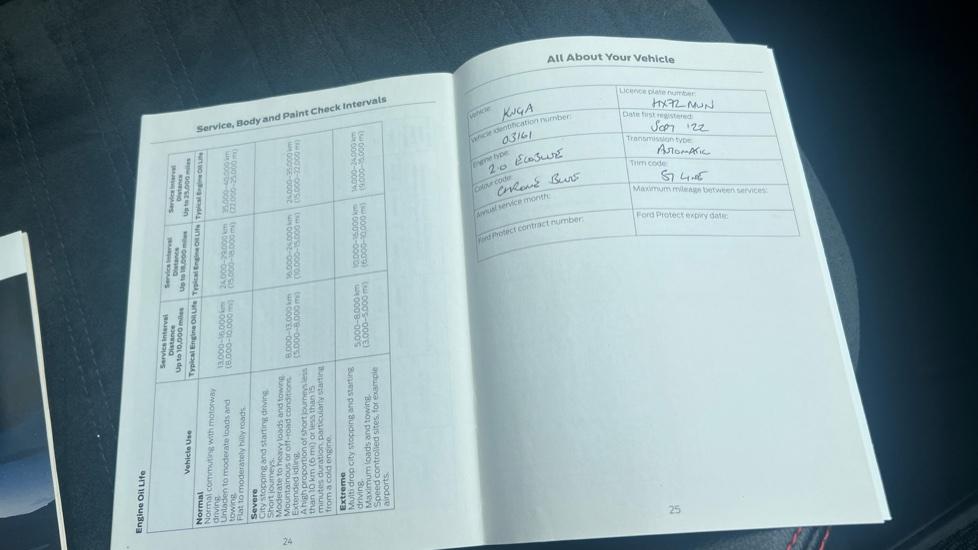 Service, Body and Paint Check Intervals
Engine Oil Life
Vehicle Use
Service Interval
Distance
Up to 10,000 miles
Typical Engine Oil Life
Service Interval
Distance
Up to 18,000 miles
Typical Engine Oil Life
Service Interval
Distance
Up to 25,000 miles
Typical Engine Oil Life
Normal
Normal commuting with motorway
driving.
Unladen to moderate loads and
towing.
Flat to moderately hilly roads.
13,000–16,000 km
(8,000–10,000 mi)
24,000–29,000 km
(15,000–18,000 mi)
35,000–40,000 km
(22,000–25,000 mi)
Severe
City stopping and starting driving.
Short journeys.
Moderate to heavy loads and towing.
Mountainous or off-road conditions.
Extended idling.
A high proportion of short journeys less
than 10 km (6 mi) or less than 15
minutes duration, particularly starting
from a cold engine.
8,000–13,000 km
(5,000–8,000 mi)
16,000–24,000 km
(10,000–15,000 mi)
24,000–35,000 km
(15,000–22,000 mi)
Extreme
Multi drop city stopping and starting
driving.
Maximum loads and towing.
Speed controlled sites, for example
airports.
5,000–8,000 km
(3,000–5,000 mi)
10,000–16,000 km
(6,000–10,000 mi)
14,000–24,000 km
(9,000–15,000 mi)
24
All About Your Vehicle
Vehicle:
KUGA
Licence plate number:
HX72 MUN
Vehicle identification number:
03161
Date first registered:
'22
Engine type:
2.0 ECOBLUE
Transmission type:
AUTOMATIC
Colour code:
CHROME BLUE
Trim code:
Annual service month:
Maximum mileage between services:
Ford Protect contract number:
Ford Protect expiry date:
25